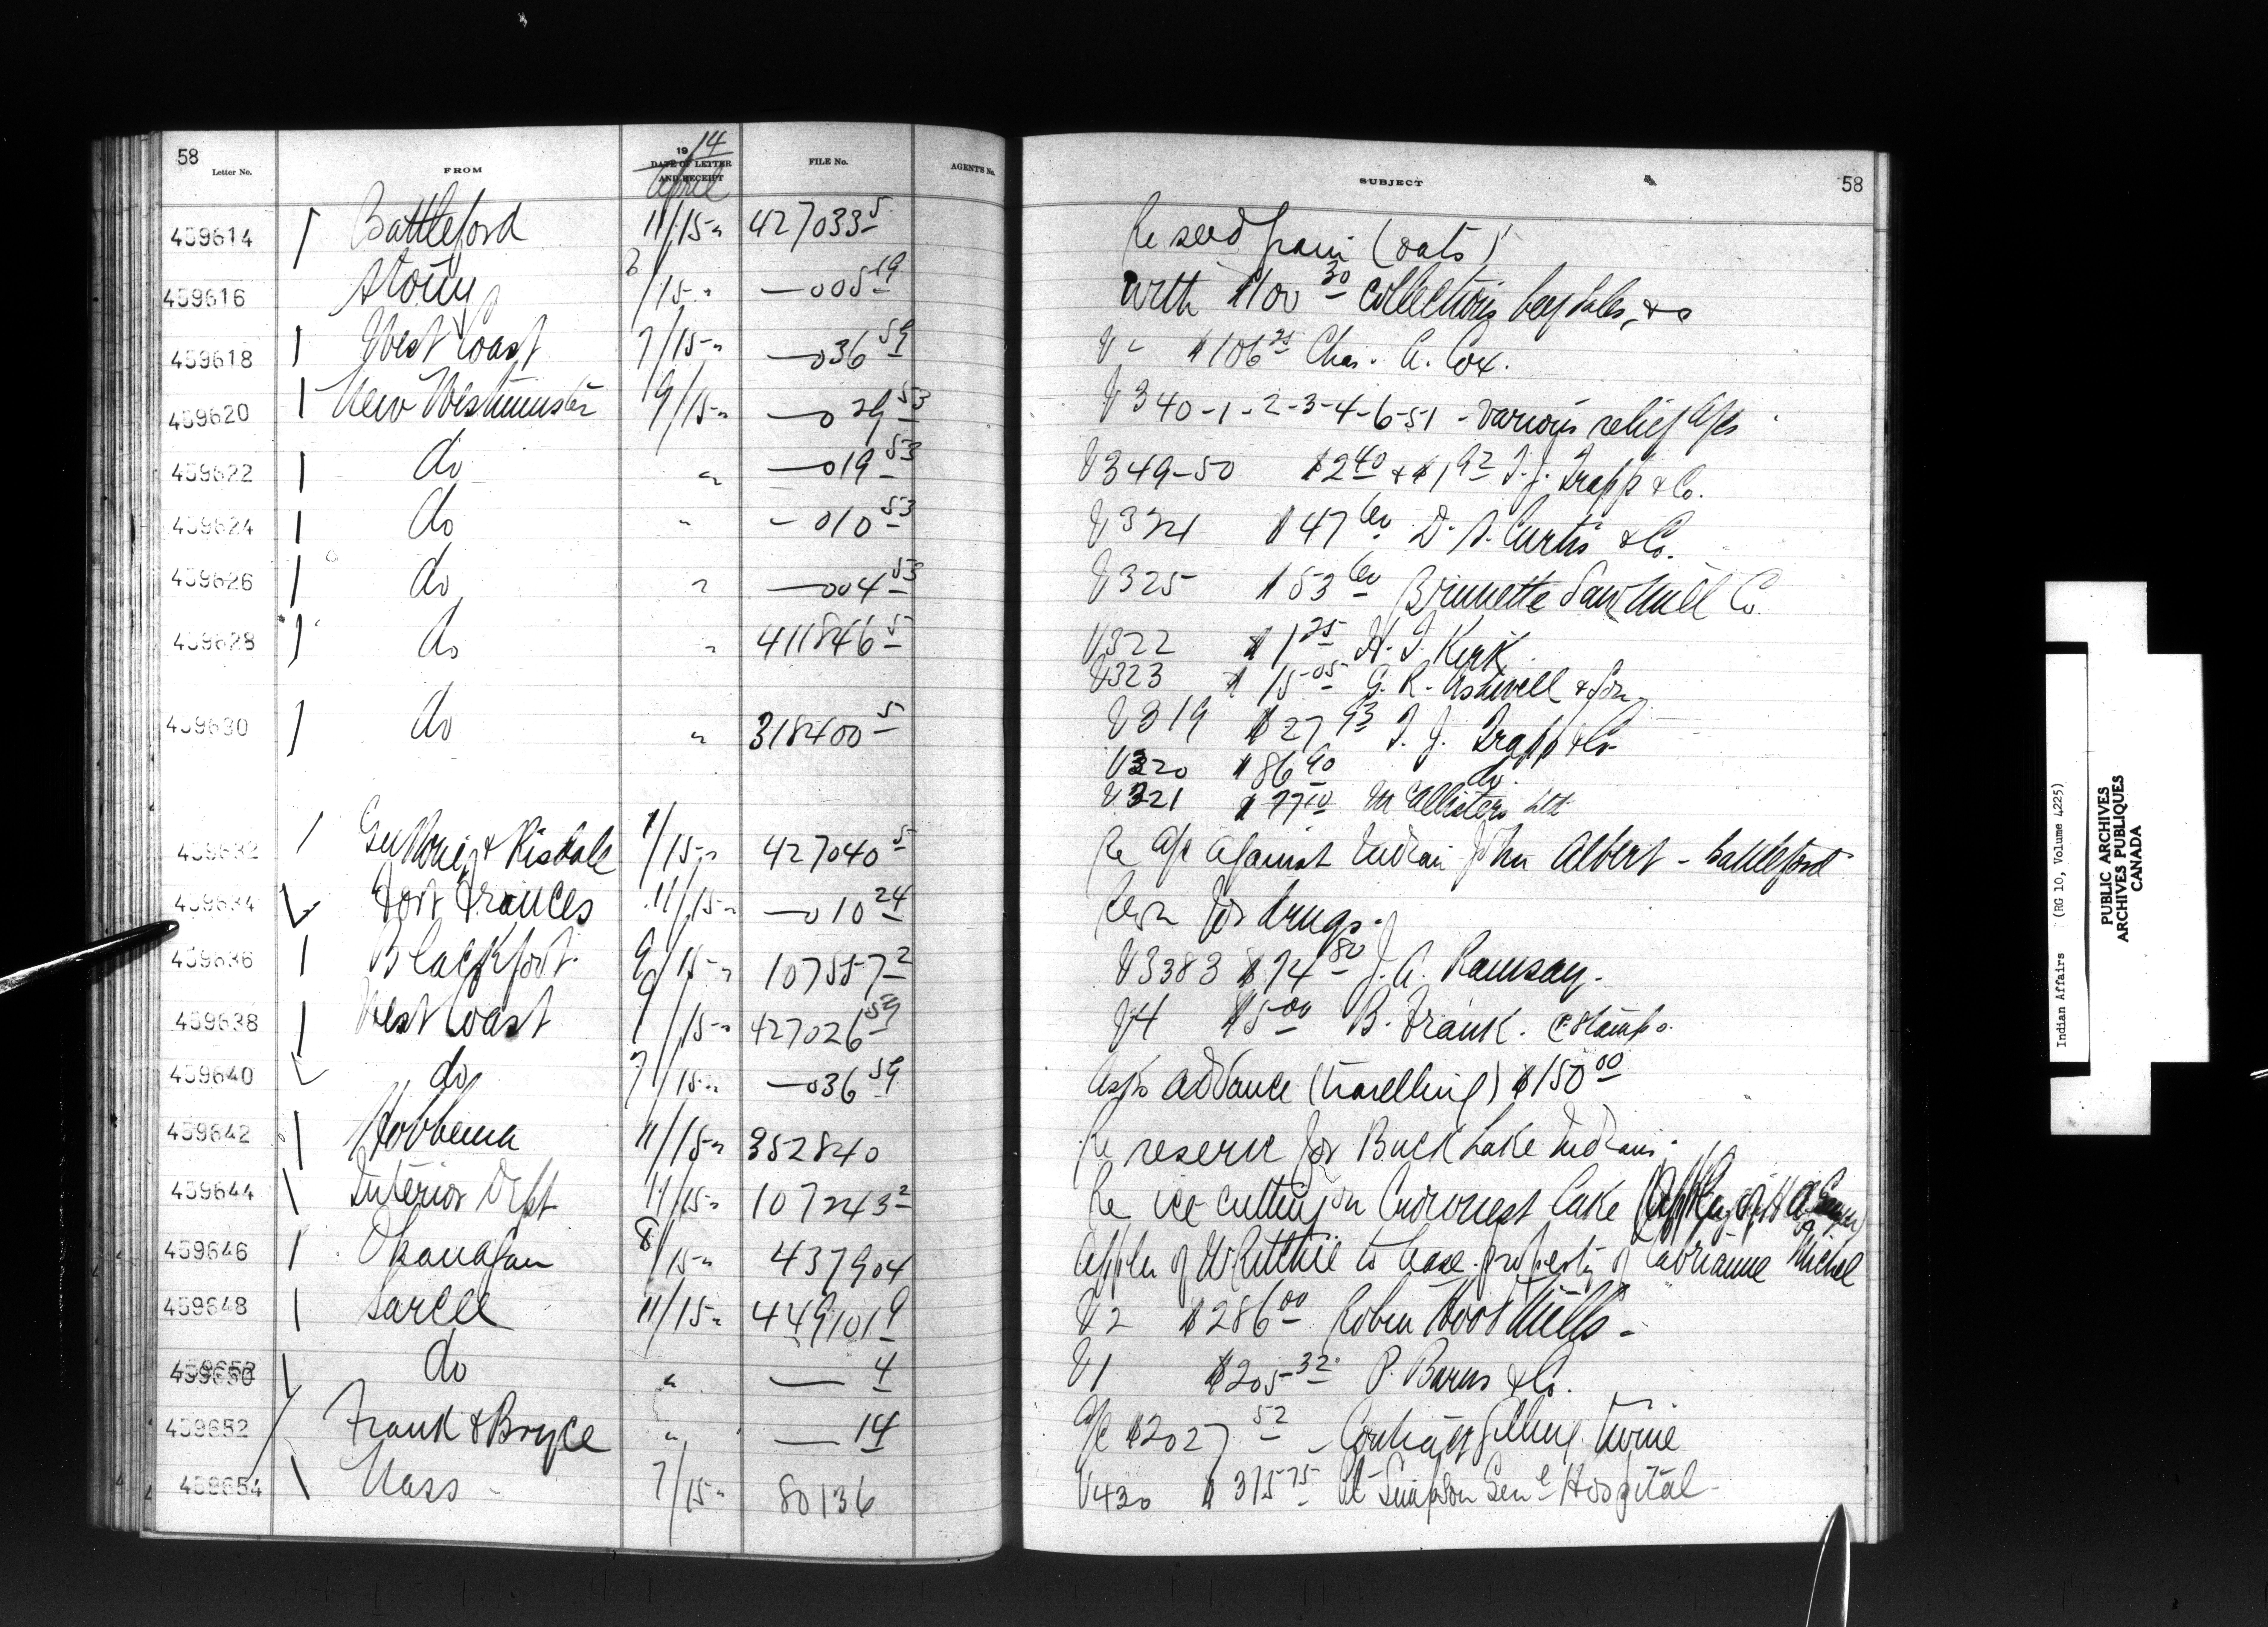 58
Letter No. FROM 1914 DATE OF LETTER AND RECEIPT April FILE No. AGENT'S No. SUBJECT 58
459614 Battleford 11/15 " 427033 5 Re seed grain (oats)
459616 Stony 8/15 " — 005 19 With $100 30 collections beef sales, &c
459618 West Coast 7/15 " — 036 59 V — $106 25 Chas. A. Cox.
459620 New Westminster 9/15 " — 029 53 V 340-1-2-3-4-6-51 - various relief a/cs
459622 do " — 019 53 V 349-50 $2 40 + $1 92 T. J. Trapp & Co.
459624 do " — 010 53 V 324 $47 60 D. S. Curtis & Co.
459626 do " — 004 53 V 325 $53 60 Brunette Saw Mill Co
459628 do " 411846 5 V 322 $1 25 H. J. Kirk
V 323 $15 05 G. R. Ashwell & Son
459630 do " 318400 5 V 319 $27 93 T. J. Trapp & Co
V 320 $86 90 do.
V 321 $77 10 McAllisters Ltd
459632 & Risdale 1/15 " 427040 5 Re a/c against Indian John Albert - Battleford
459634 Fort Frances 11/15 " — 010 24 Reqn for drugs.
459636 Blackfoot 9/15 " 107557 2 V 3383 $74 80 J. A. Ramsay.
459638 West Coast 7/15 " 427026 59 V 4 $5 00 B. Frank. P. Stamps.
459640 do 7/15 " — 036 59 Asks advance (travelling) $150 00
459642 Hobbema 11/15 " 352840 Re reserve for Buck Lake Indians.
459644 Interior Dept 11/15 " 107243 2 Re ice cutting on Crowsnest Lake
459646 Okanagan 8/15 " 437904 Appln of W Ritchie to lease property of Michel
459648 Sarcee 11/15 " 449101 9 V 2 $286 00 Robin Hood Mills -
459650 do " — 4 V 1 $205 32 P. Burns & Co.
459652 Frank & Bryce " — 14 a/c $2027 52 - Contract Gilling Twine
459654 Nass - 7/15 " 80136 V 430 $375 75 Pt Simpson Genl Hospital -
Indian Affairs (RG 10, Volume 4225)
PUBLIC ARCHIVES
ARCHIVES PUBLIQUES
CANADA